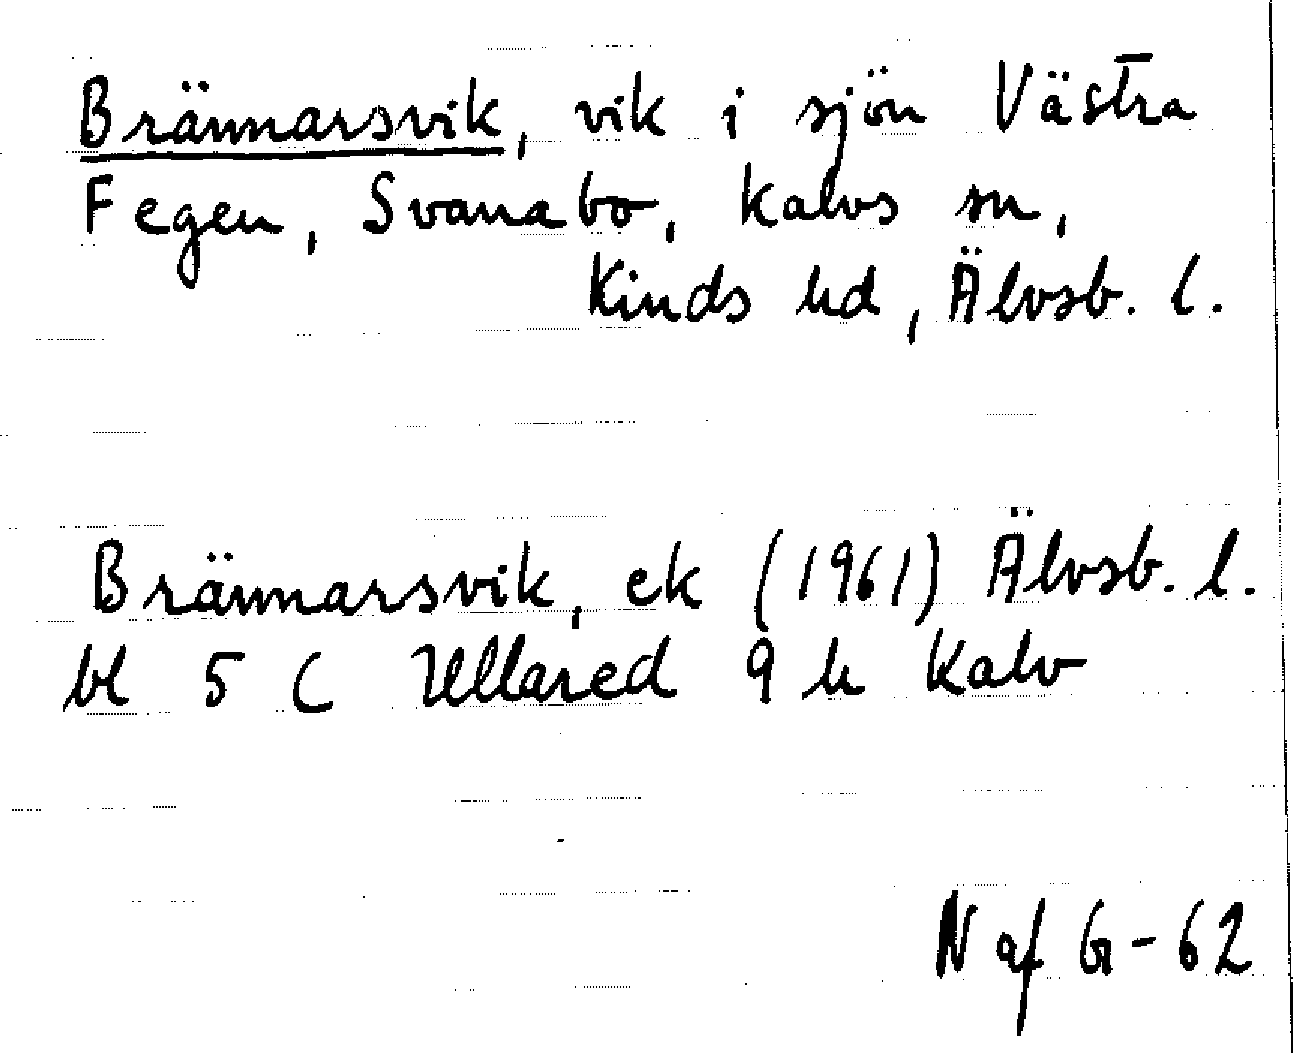 Brännarsvik, vik i sjön Västra
Fegen, Svanabo, Kalvs sn,
Kinds hd, Älvsb. l.
Brännarsvik, ek (1961) Älvsb. l.
bl 5 C Ullared 9 h Kalv
N af G-62